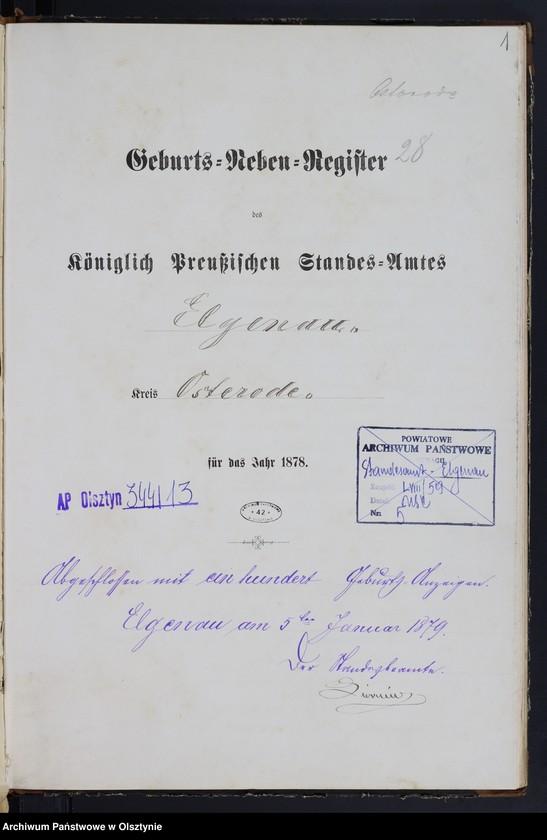 1
Osterode
Geburts-Neben-Register 28
des
Königlich Preußischen Standes-Amtes
Elgenau.
Kreis Osterode.
für das Jahr 1878.
POWIATOWE
ARCHIWUM PAŃSTWOWE
Standesamt - Elgenau
Zespół LVIII/59
Dział
Nr. 5
AP Olsztyn 344/13
42
Abgeschlossen mit ein hundert Geburts Anzeigen.
Elgenau am 5ten Januar 1879.
Der Standesbeamte.
Archiwum Państwowe w Olsztynie